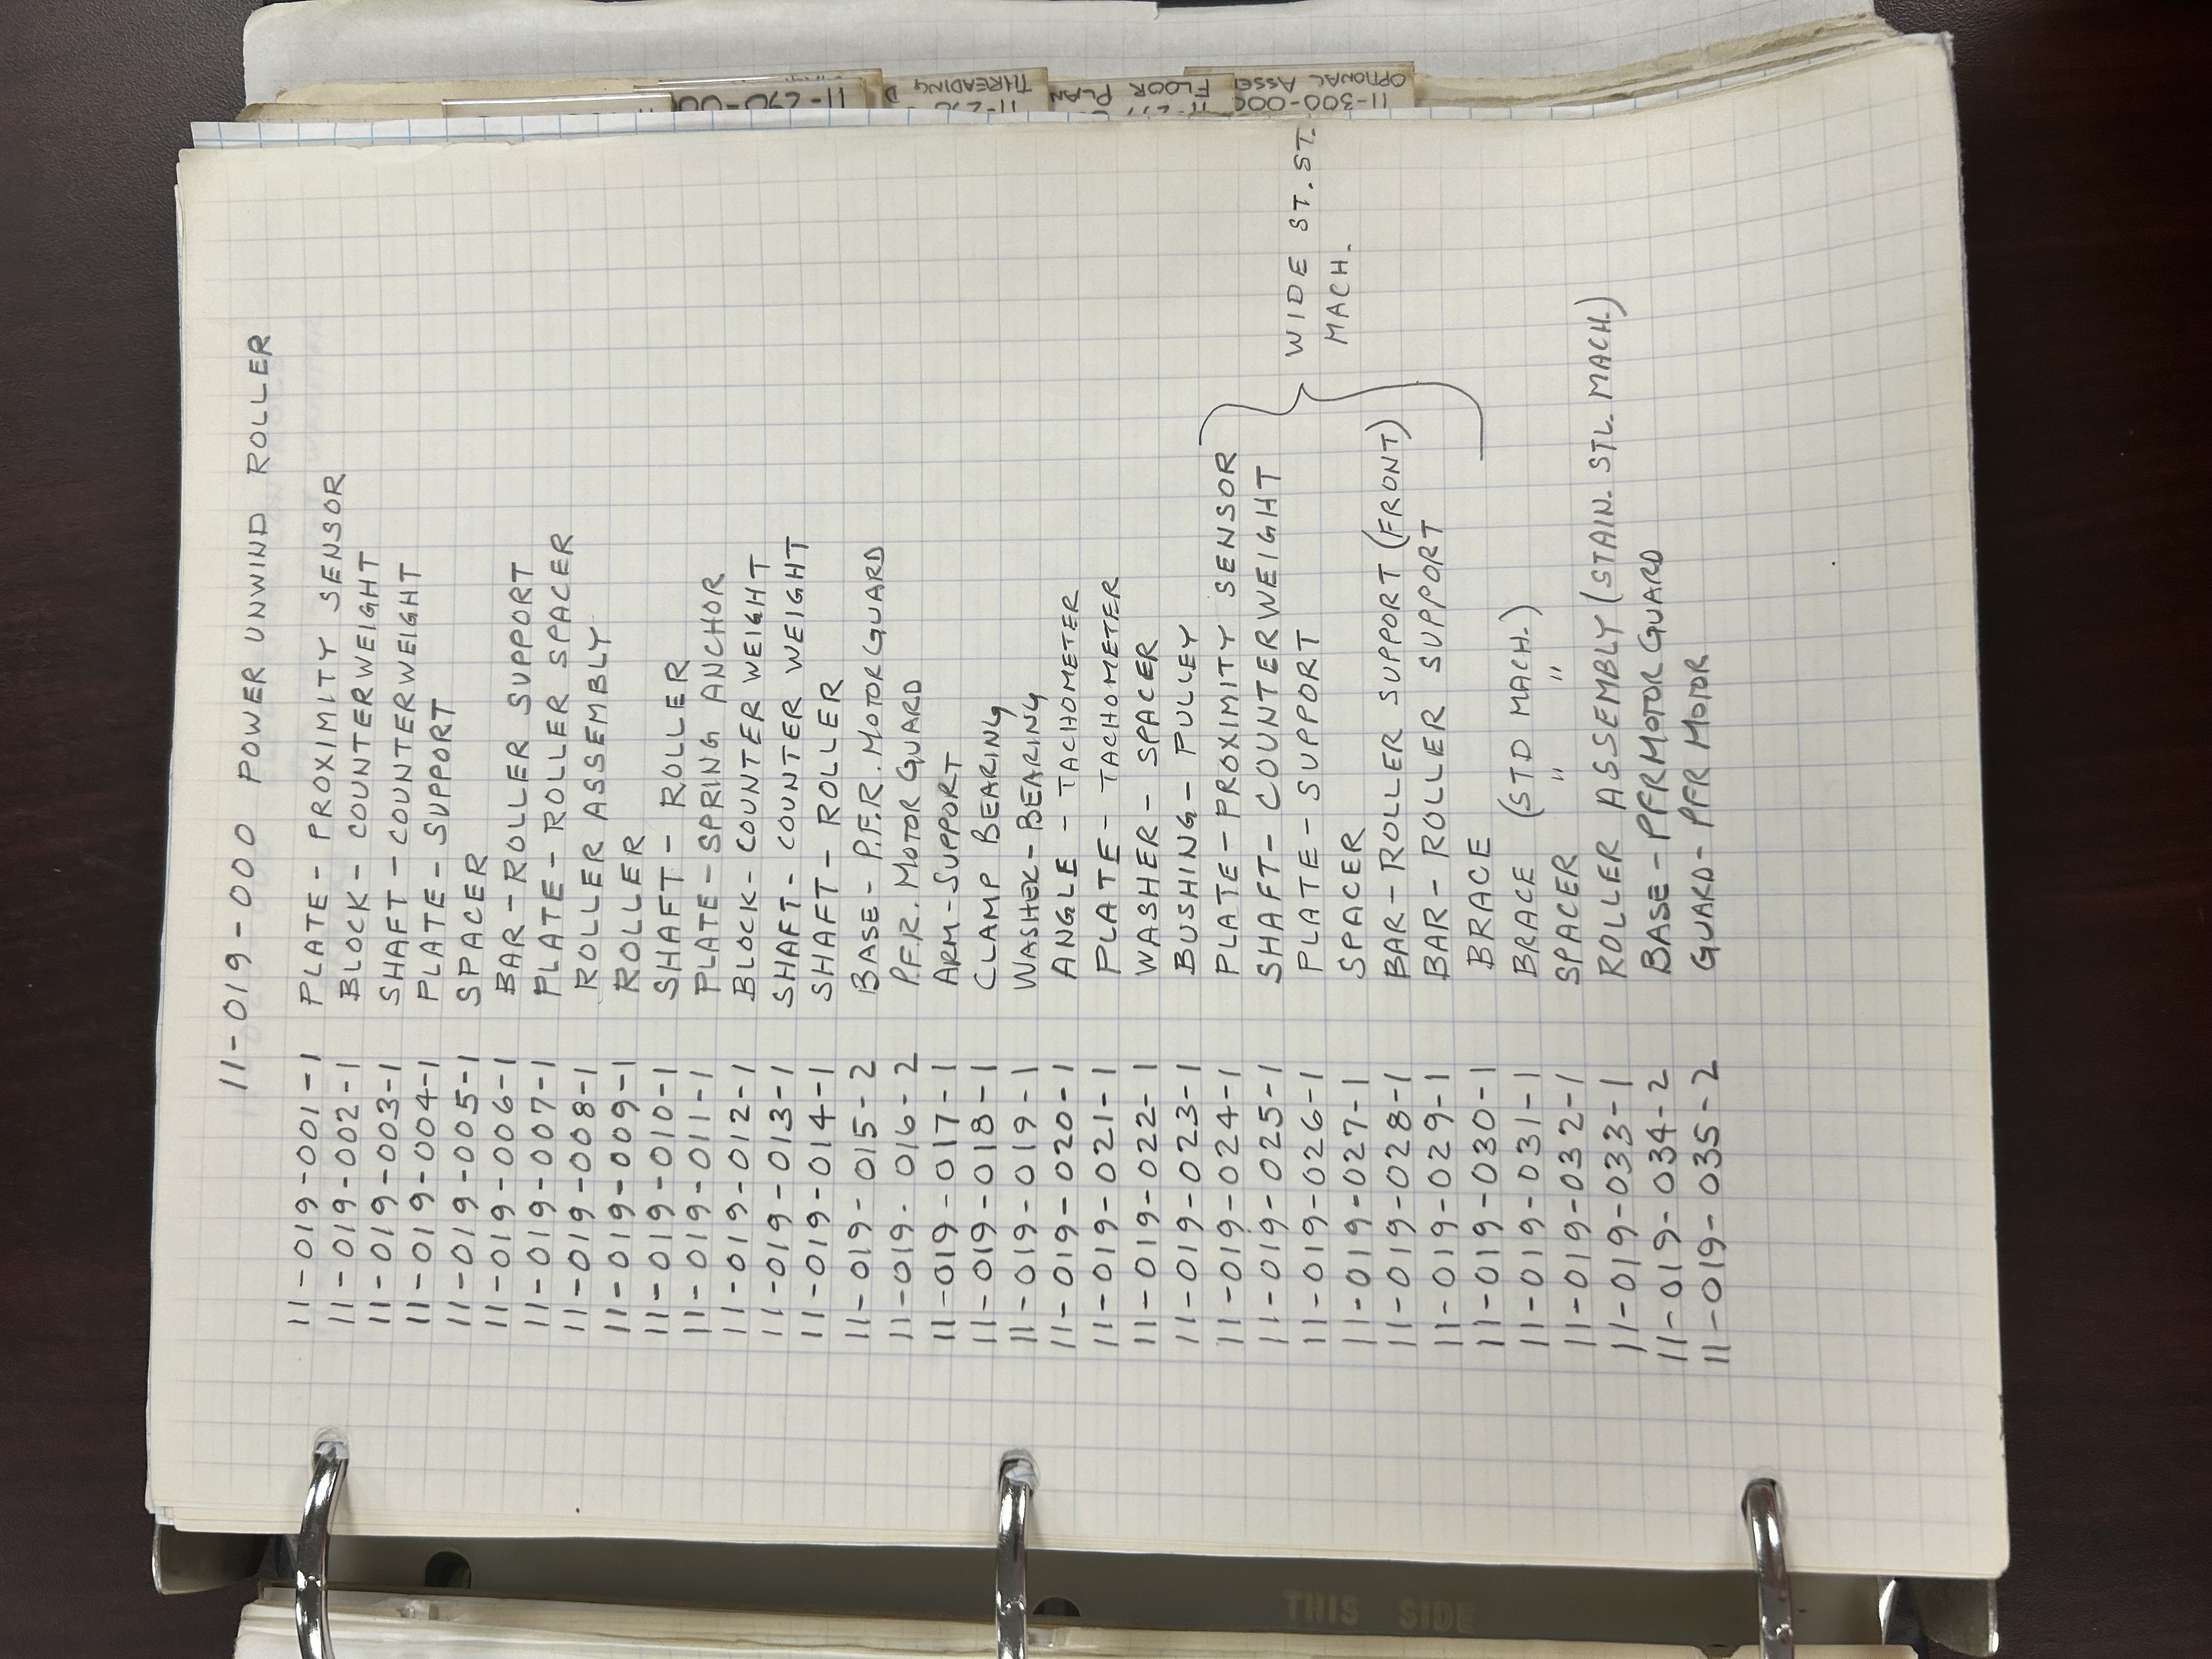 11-019-000 POWER UNWIND ROLLER
11-019-001-1 PLATE - PROXIMITY SENSOR
11-019-002-1 BLOCK - COUNTERWEIGHT
11-019-003-1 SHAFT - COUNTERWEIGHT
11-019-004-1 PLATE - SUPPORT
11-019-005-1 SPACER
11-019-006-1 BAR - ROLLER SUPPORT
11-019-007-1 PLATE - ROLLER SPACER
11-019-008-1 ROLLER ASSEMBLY
11-019-009-1 ROLLER
11-019-010-1 SHAFT - ROLLER
11-019-011-1 PLATE - SPRING ANCHOR
11-019-012-1 BLOCK - COUNTER WEIGHT
11-019-013-1 SHAFT - COUNTER WEIGHT
11-019-014-1 SHAFT - ROLLER
11-019-015-2 BASE - P.F.R. MOTOR GUARD
11-019-016-2 P.F.R. MOTOR GUARD
11-019-017-1 ARM - SUPPORT
11-019-018-1 CLAMP BEARING
11-019-019-1 WASHER - BEARING
11-019-020-1 ANGLE - TACHOMETER
11-019-021-1 PLATE - TACHOMETER
11-019-022-1 WASHER - SPACER
11-019-023-1 BUSHING - PULLEY
11-019-024-1 PLATE - PROXIMITY SENSOR
11-019-025-1 SHAFT - COUNTERWEIGHT
11-019-026-1 PLATE - SUPPORT
11-019-027-1 SPACER
11-019-028-1 BAR - ROLLER SUPPORT (FRONT)
11-019-029-1 BAR - ROLLER SUPPORT
11-019-030-1 BRACE
WIDE ST. ST.
MACH.
11-019-031-1 BRACE (STD MACH.)
11-019-032-1 SPACER " "
11-019-033-1 ROLLER ASSEMBLY (STAIN. STL. MACH.)
11-019-034-2 BASE - PFR MOTOR GUARD
11-019-035-2 GUARD - PFR MOTOR
THREADING D
FLOOR PLAN
11-300-000
OPTIONAL ASSE
THIS SIDE